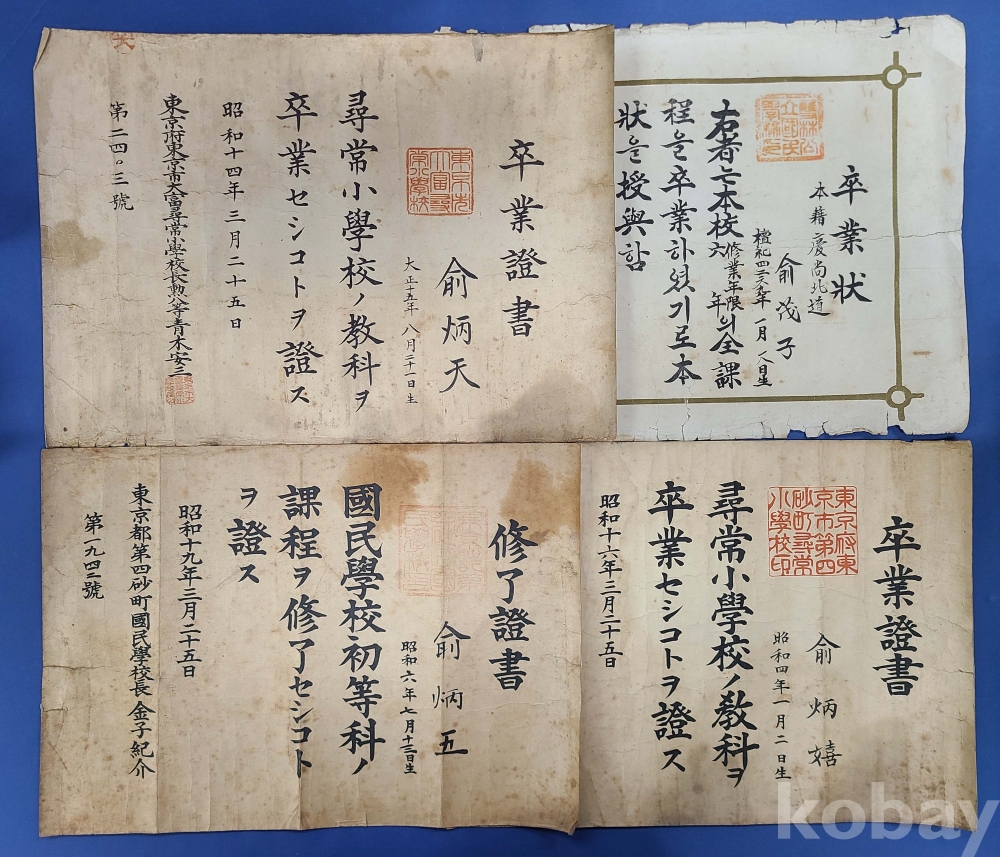 卒業證書
俞炳天
大正十五年八月二十一日生
尋常小學校ノ教科ヲ
卒業セシコトヲ證ス
昭和十四年三月二十五日
東京府東京市大富尋常小學校長勲八等青木安三
第二四〇三號
卒業状
本籍慶尚北道
俞茂子
檀紀四二六九年一月八日生
右者는本校修業年限六年의全課
程을卒業하였기로本
狀을授與함
修了證書
俞炳五
昭和六年七月十三日生
國民學校初等科ノ
課程ヲ修了セシコト
ヲ證ス
昭和十九年三月二十五日
東京都第四砂町國民學校長金子紀介
第一九四二號
卒業證書
東京府東
京市第四
砂町尋常
小學校印
俞炳嬉
昭和四年一月二日生
尋常小學校ノ教科ヲ
卒業セシコトヲ證ス
昭和十六年三月二十五日
kobay